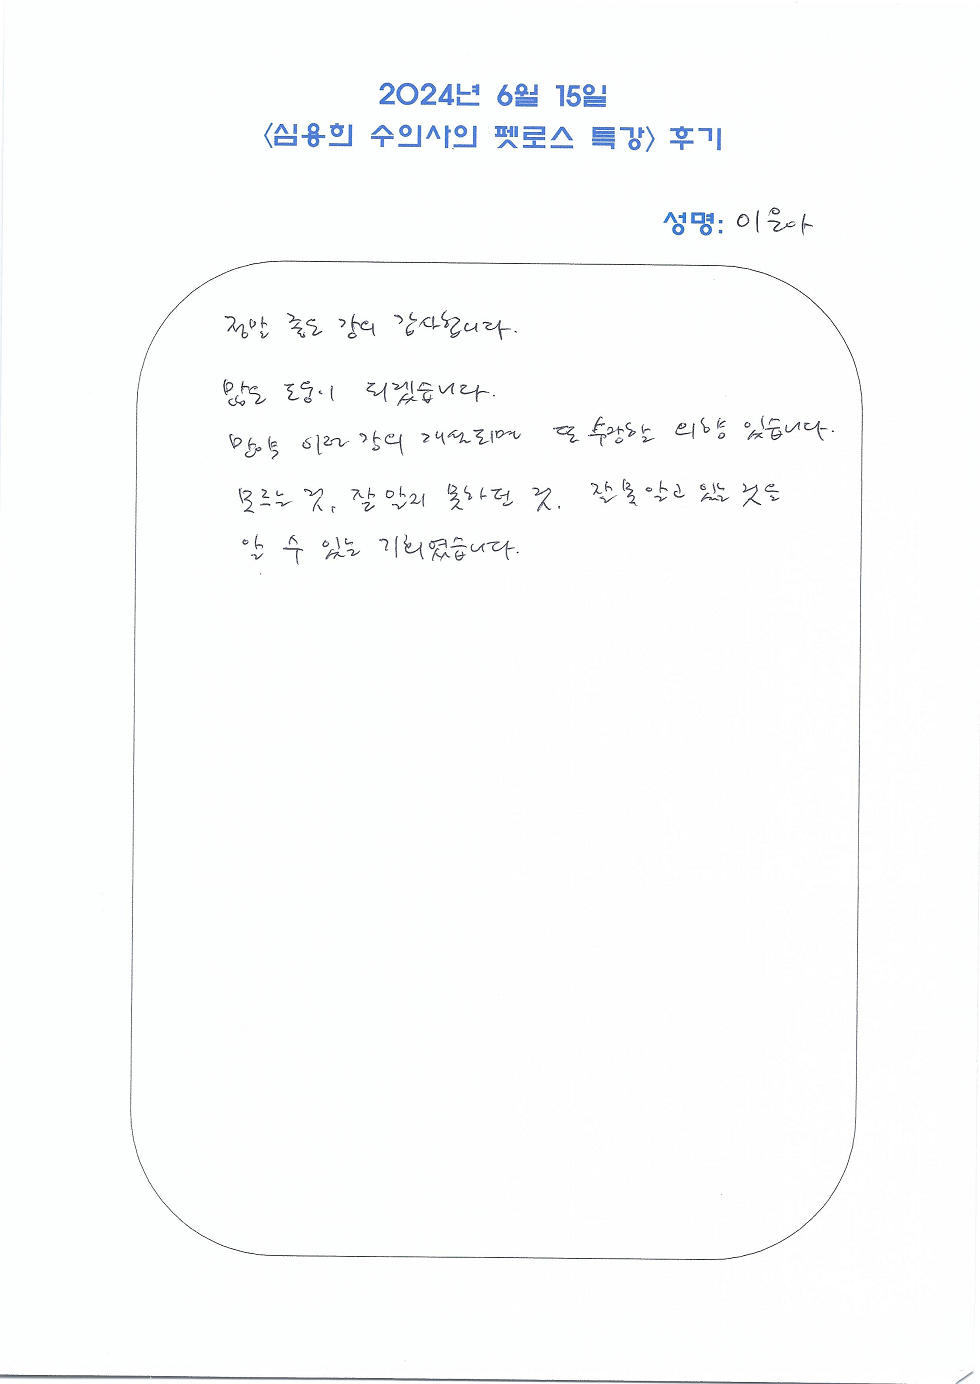 2024년 6월 15일
<심용희 수의사의 펫로스 특강> 후기
성명: 이윤아
정말 좋은 강의 감사합니다.
많은 도움이 되겠습니다.
만약 이런 강의 개설되면 또 수강할 의향 있습니다.
모르는 것, 잘 알지 못하던 것, 잘못 알고 있는 것을
알 수 있는 기회였습니다.